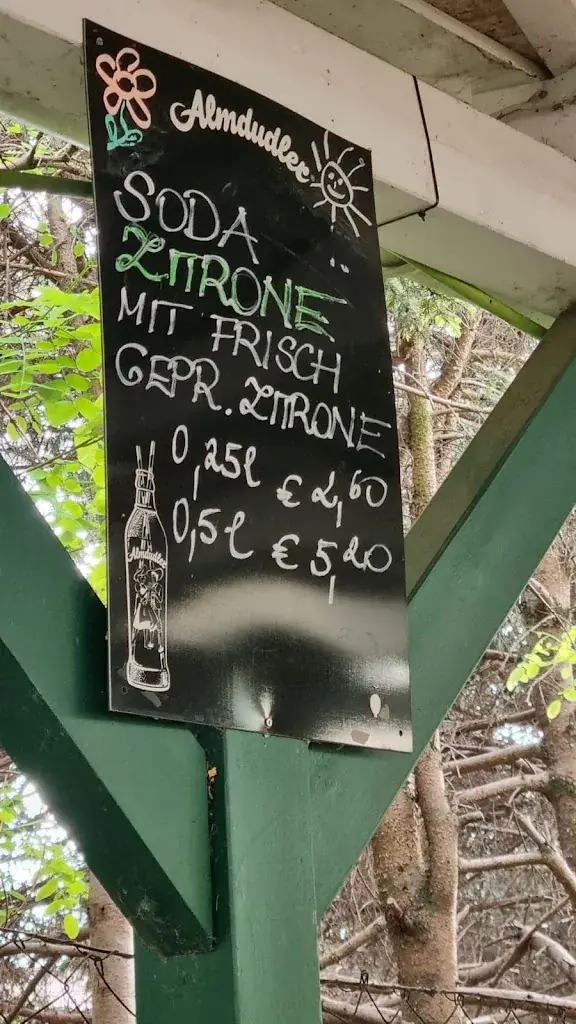 Almdudler
SODA
ZITRONE
MIT FRISCH
GEPR. ZITRONE
0,25l € 2,60
0,5l € 5,20
Almdudler